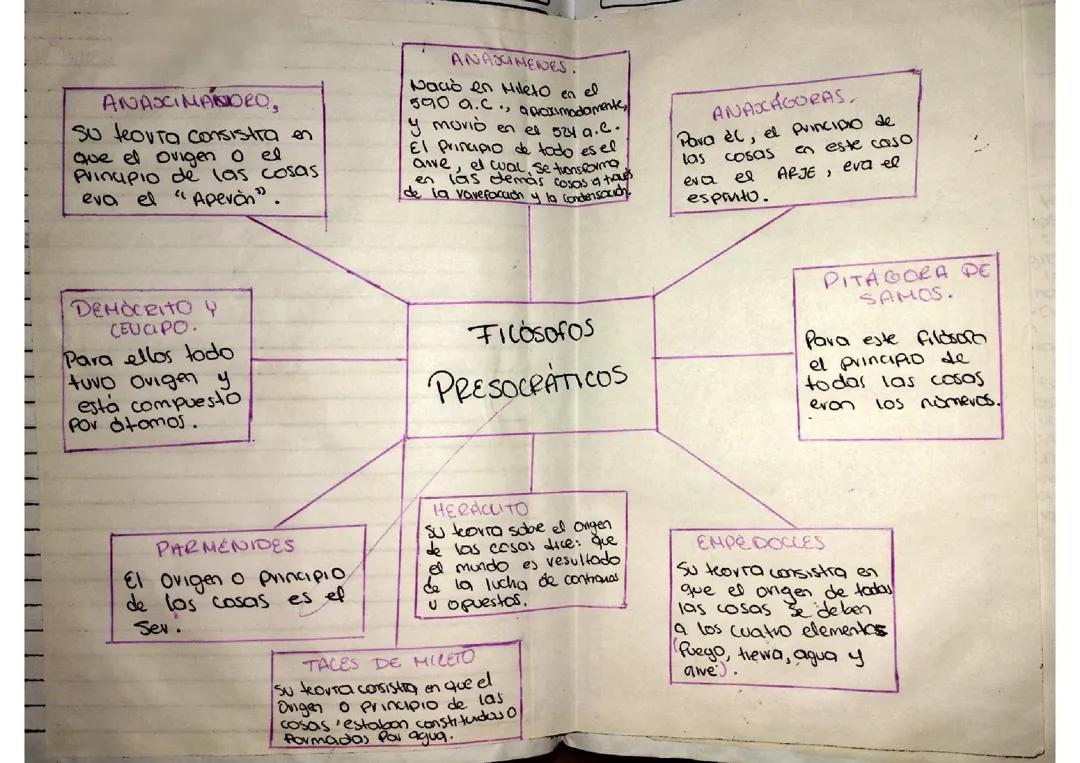 ANAXIMENES.
Nació en Mileto en el
590 a.C., aproximadamente,
y movió en el 524 a.C.
El Principio de todo es el
aire, el cual, se transforma
en las demás cosas a través
de la rarefacción y la condensación.
ANAXIMANDRO,
Su teoría consistía en
que el origen o el
Principio de las cosas
era el "Aperón".
ANAXÁGORAS.
Para él, el principio de
las cosas en este caso
era el ARJE, era el
espíritu.
DEMÓCRITO Y
LEUCIPO.
Para ellos todo
tuvo origen y
está compuesto
por átomos.
FILÓSOFOS
PRESOCRÁTICOS
PITÁGORA DE
SAMOS.
Para este filósofo
el principio de
todas las cosas
eran los números.
PARMÉNIDES
El origen o principio
de las cosas es el
Ser.
HERÁCLITO
Su teoría sobre el origen
de las cosas dice: que
el mundo es resultado
de la lucha de contrarios
u opuestos.
EMPÉDOCLES
Su teoría consistía en
que el origen de todas
las cosas se deben
a los cuatro elementos
(fuego, tierra, agua y
aire).
TALES DE MILETO
Su teoría consistía en que el
Origen o principio de las
cosas estaban constituidas o
formadas por agua.